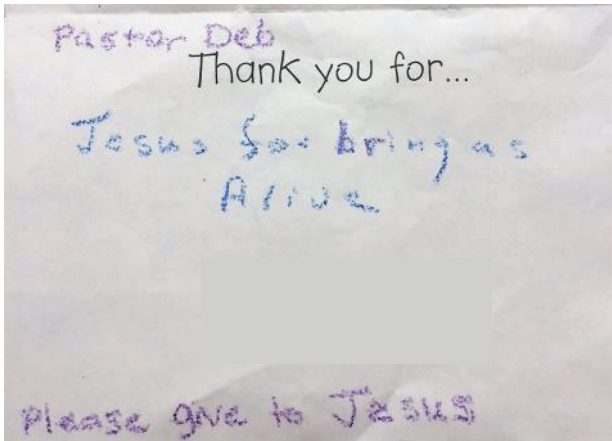 Pastor Deb
Thank you for...
Jesus for bring us
Alive
Please give to Jesus